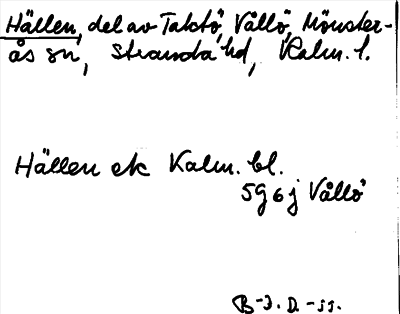 Hällen, del av Taktö, Vållö, Mönster-
ås sn, Stranda hd, Kalm. l.
Hällen ek Kalm. bl.
5G 6j Vållö
B-J. D. -55.